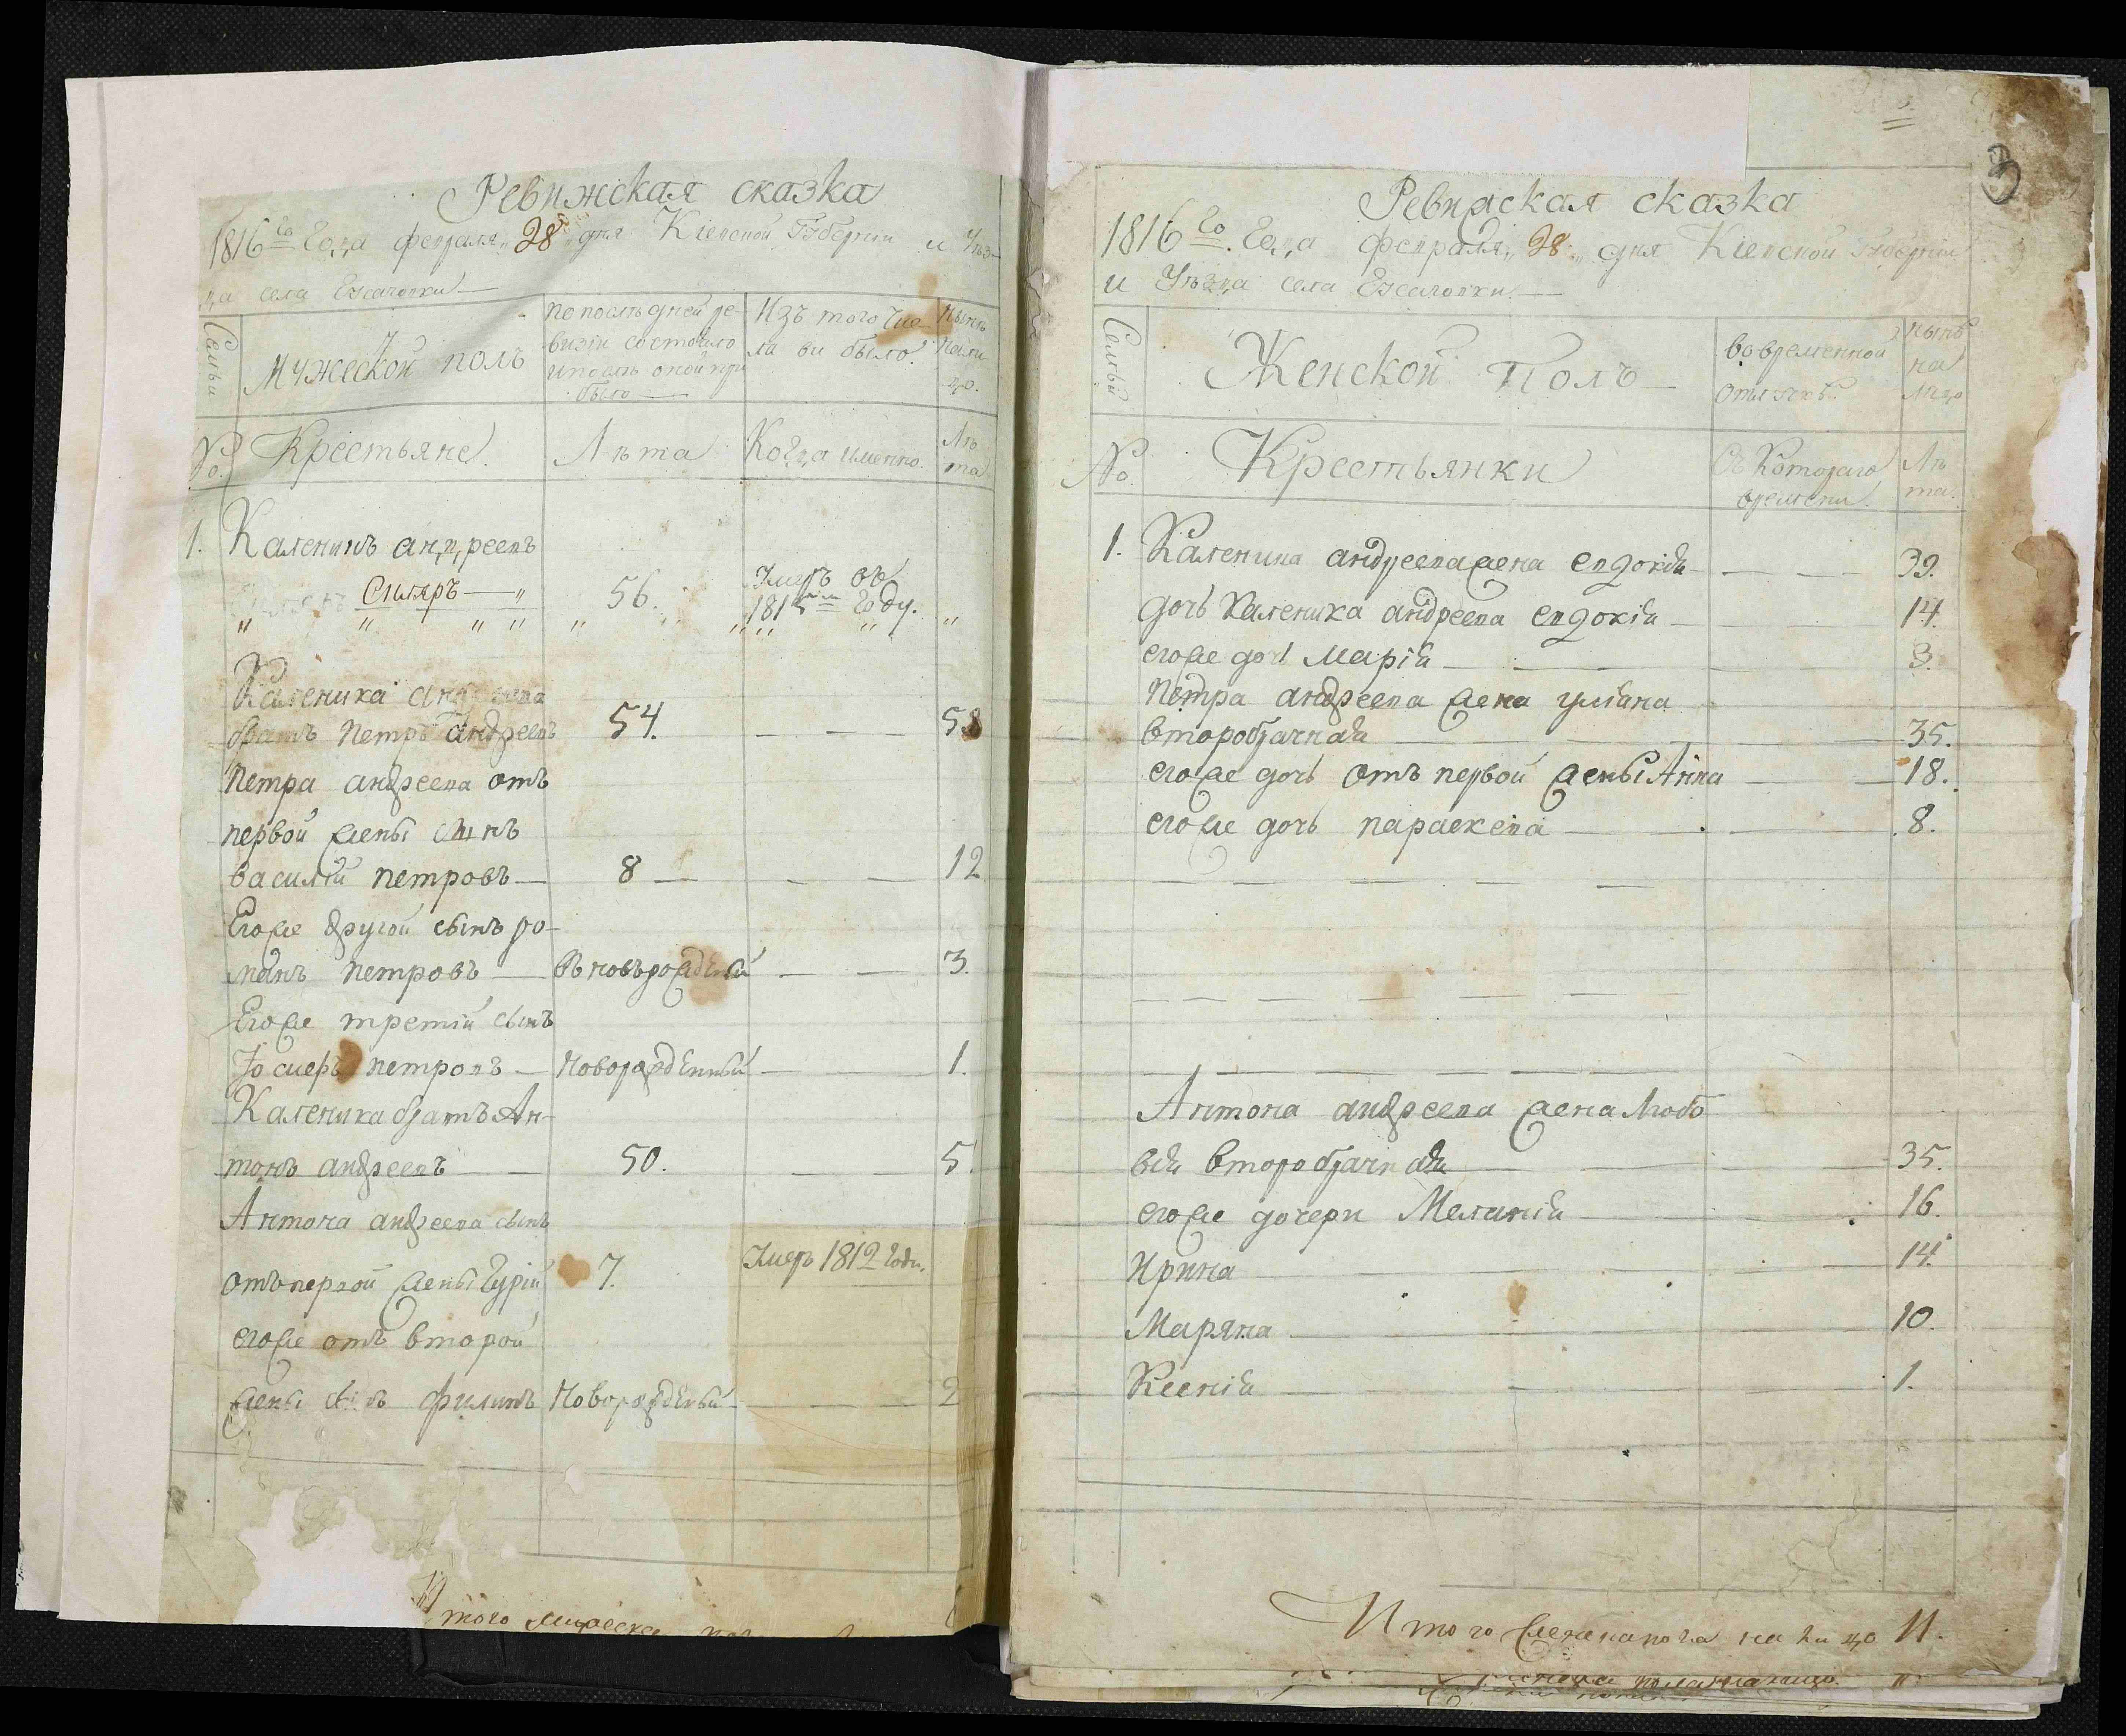 Ревижская сказка
1816го Года февраля „28„ дня Кіевской Губерніи и Уѣз-
да села
Семьи
Мужеской полъ
по послѣдней ре-
визіи состояло
и послѣ оной при
было
Изъ того чис-
ла вы было.
Нынѣ
Нали
цо.
No.
Крестьяне.
Лѣта
Когда именно.
Лѣ
та
1. Каленикъ андреевъ
Силяръ — „ 56. Умеръ въ
1815м Году. „
Каленика
братъ Петръ андреевъ 54. — — — 58
Петра андреева отъ
первой жены сынъ
василій петровъ — 8 — — — 12
Егоже другой сынъ ро-
манъ петровъ — — — 3.
Егоже третій сынъ
Іосифъ петровъ — Новорожденный — — 1.
Каленика братъ Ан-
тонъ андреевъ — 50. — — 5
Антона андреева сынъ
отъ первой жены Гурій 7. Умеръ 1812 Году.
егоже отъ второй
жены сынъ филипъ Новорожденый — — — 2
Итого мужеска
3
Ревижская сказка
1816го. Года февраля „28„ дня Кіевской Губерніи
и Уѣзда села
Семьи
Женской Полъ
во временной
отлучкѣ.
нынѣ
на
лицо
No.
Крестьянки
Съ Котораго
времени.
Лѣ
та.
1. Каленика андреева жена евдокія — — — 39.
дочь Каленика андреева евдокія — — 14.
егоже дочь Марія — — 3.
Петра андреева жена уліана
второбрачная — 35.
егоже дочь отъ первой жены Анна — — 18.
егоже дочь параскева — — 8.
Антона андреева жена Любо
вія второбрачная — 35.
егоже дочери Меланія — 16.
Ирина — 14.
Маряна — 10.
Ксенія — 1.
Итого женска пола на лицо 11.